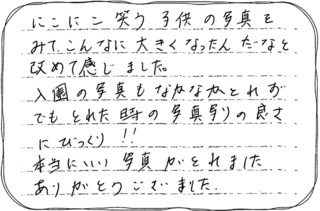 にこにこ笑う子供の写真を
みて、こんなに大きくなったんだなと
改めて感じました。
入園の写真もなかなかとれず
でもとれた時の写真写りの良さ
にびっくり!!
本当にいい写真がとれました
ありがとうございました.